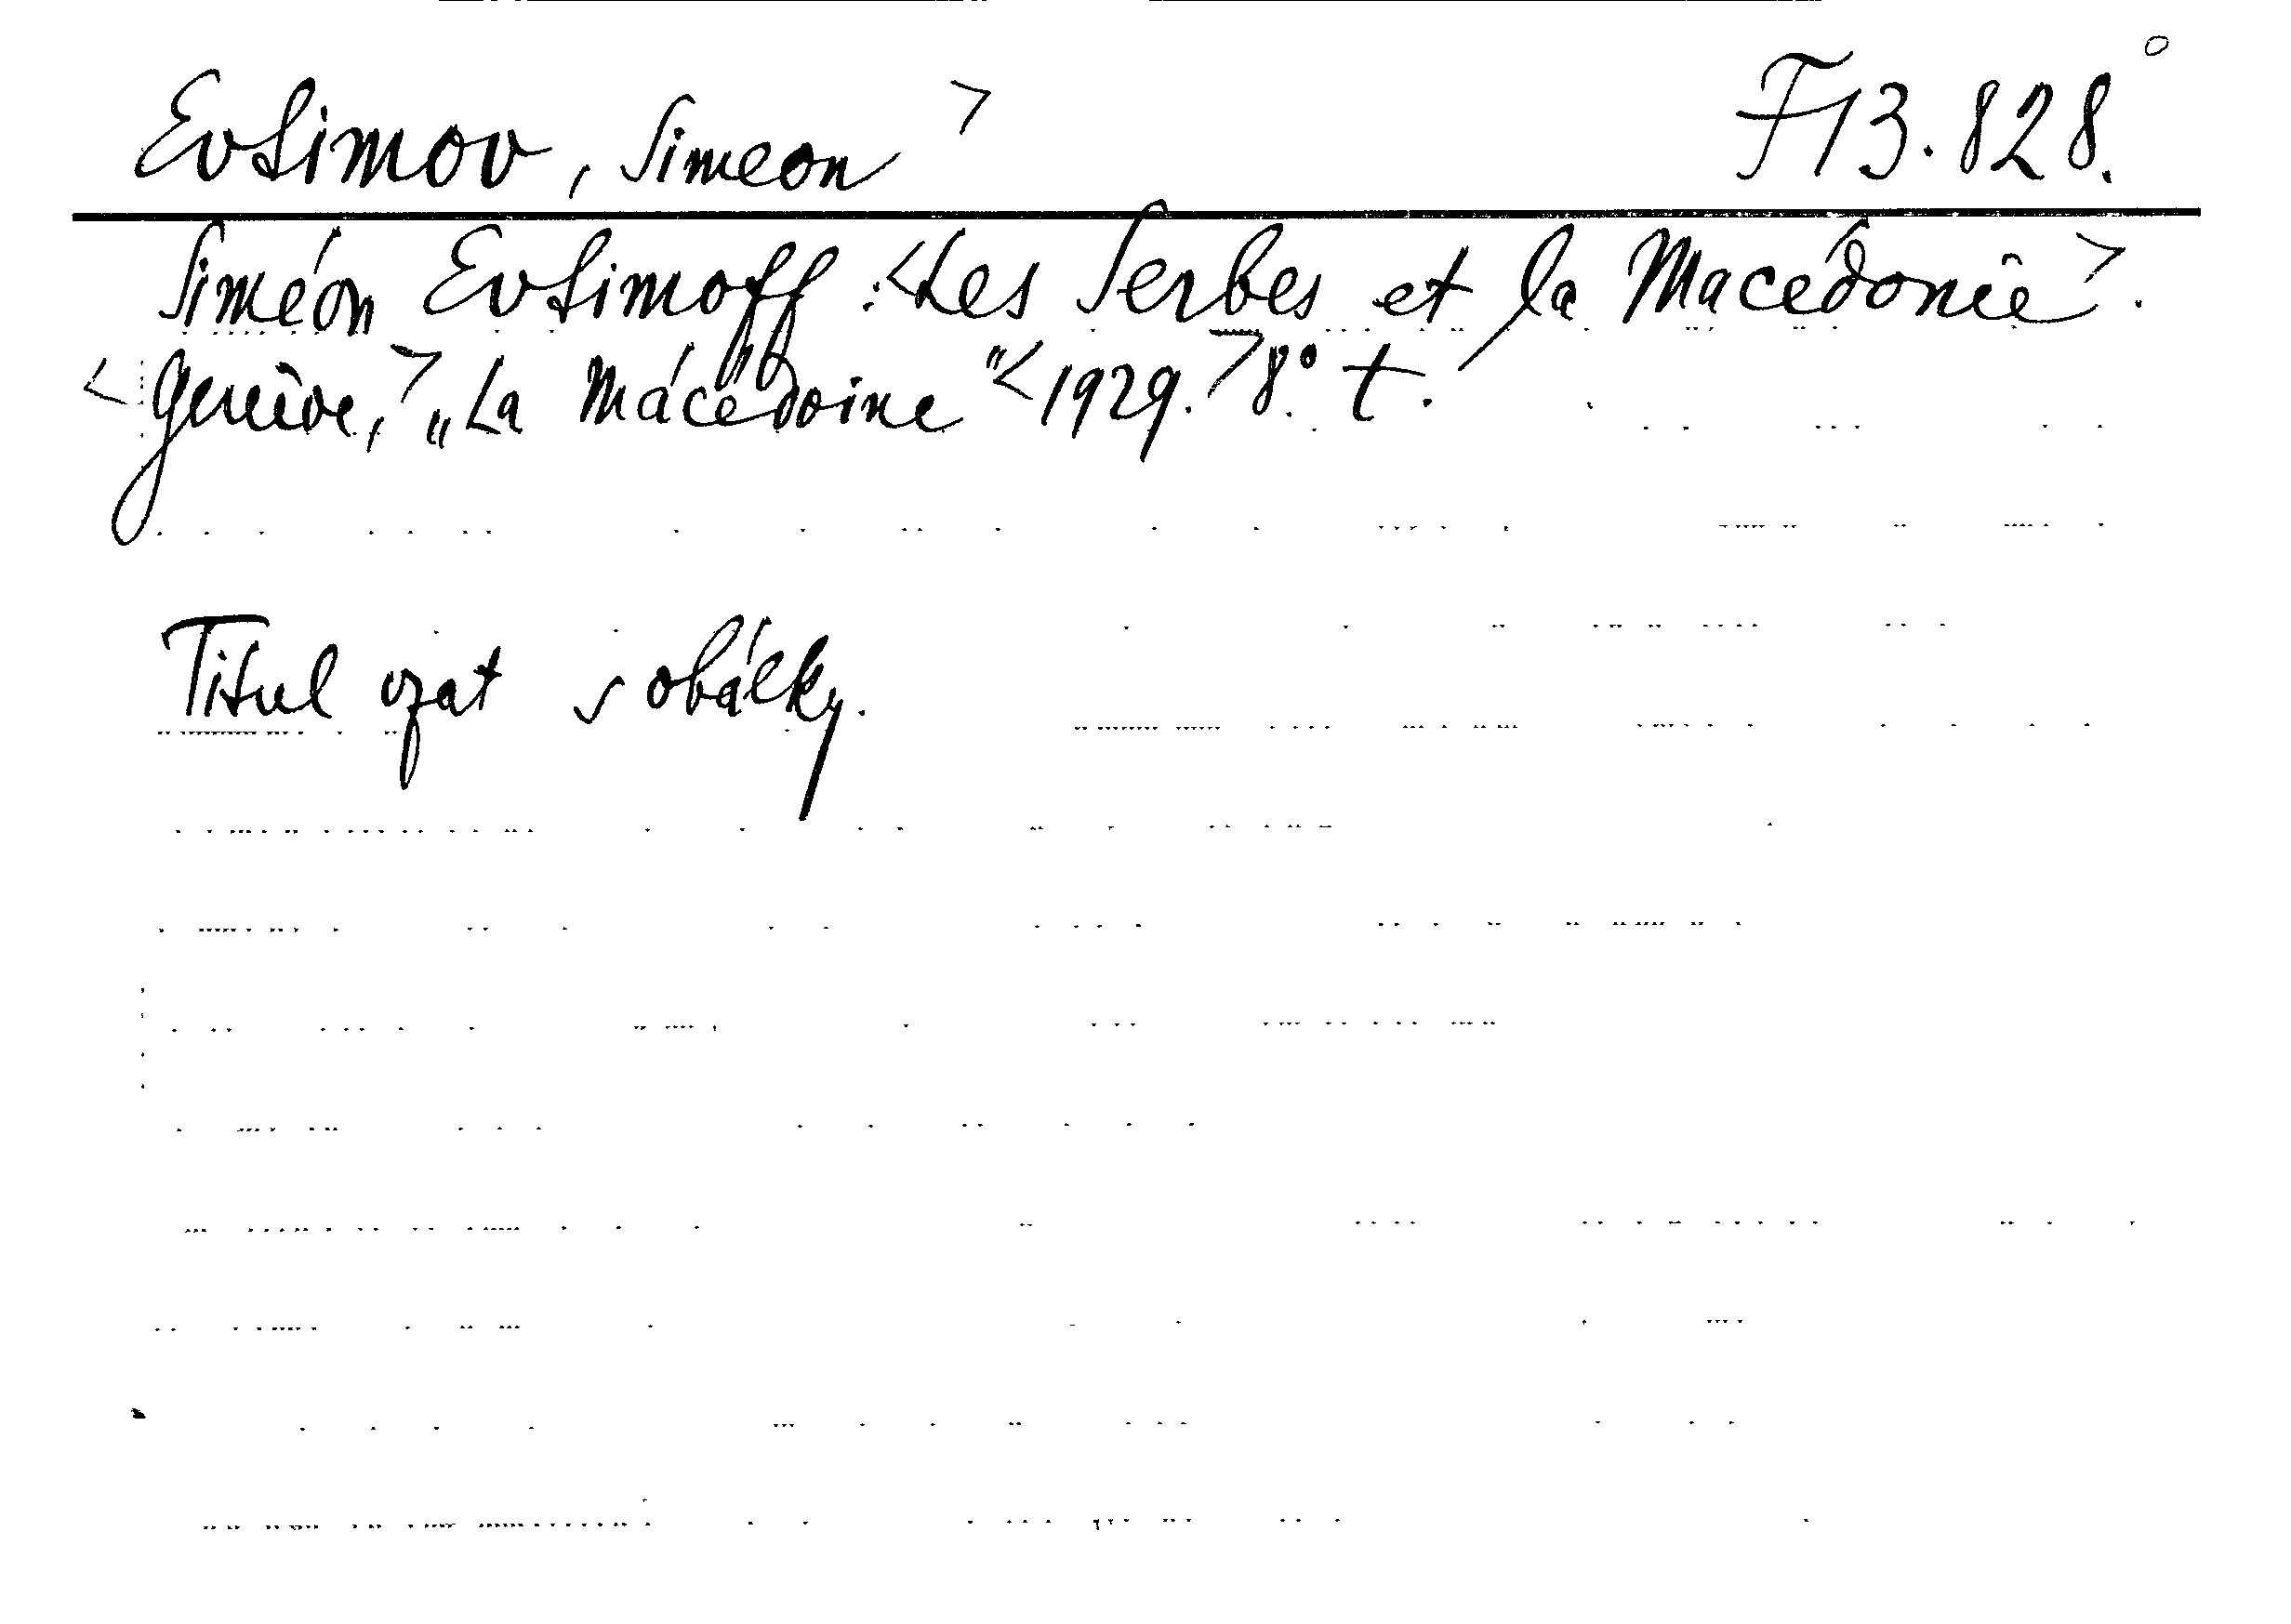 Evtimov, Simeon > F 13.828.
Siméon Evtimoff: <Les Serbes et la Macédonie>.
<Genève,> „La Macédoine“ <1929.> 8°. t.
Titul vzat s obálky.